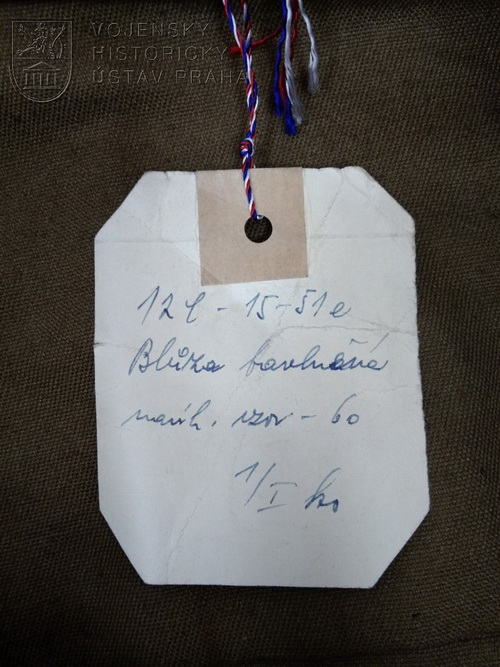 VOJENSKÝ
HISTORICKÝ
ÚSTAV PRAHA
12 - 15-51e
Blůza bavlněná
návh. vzor - 60
1/I ks